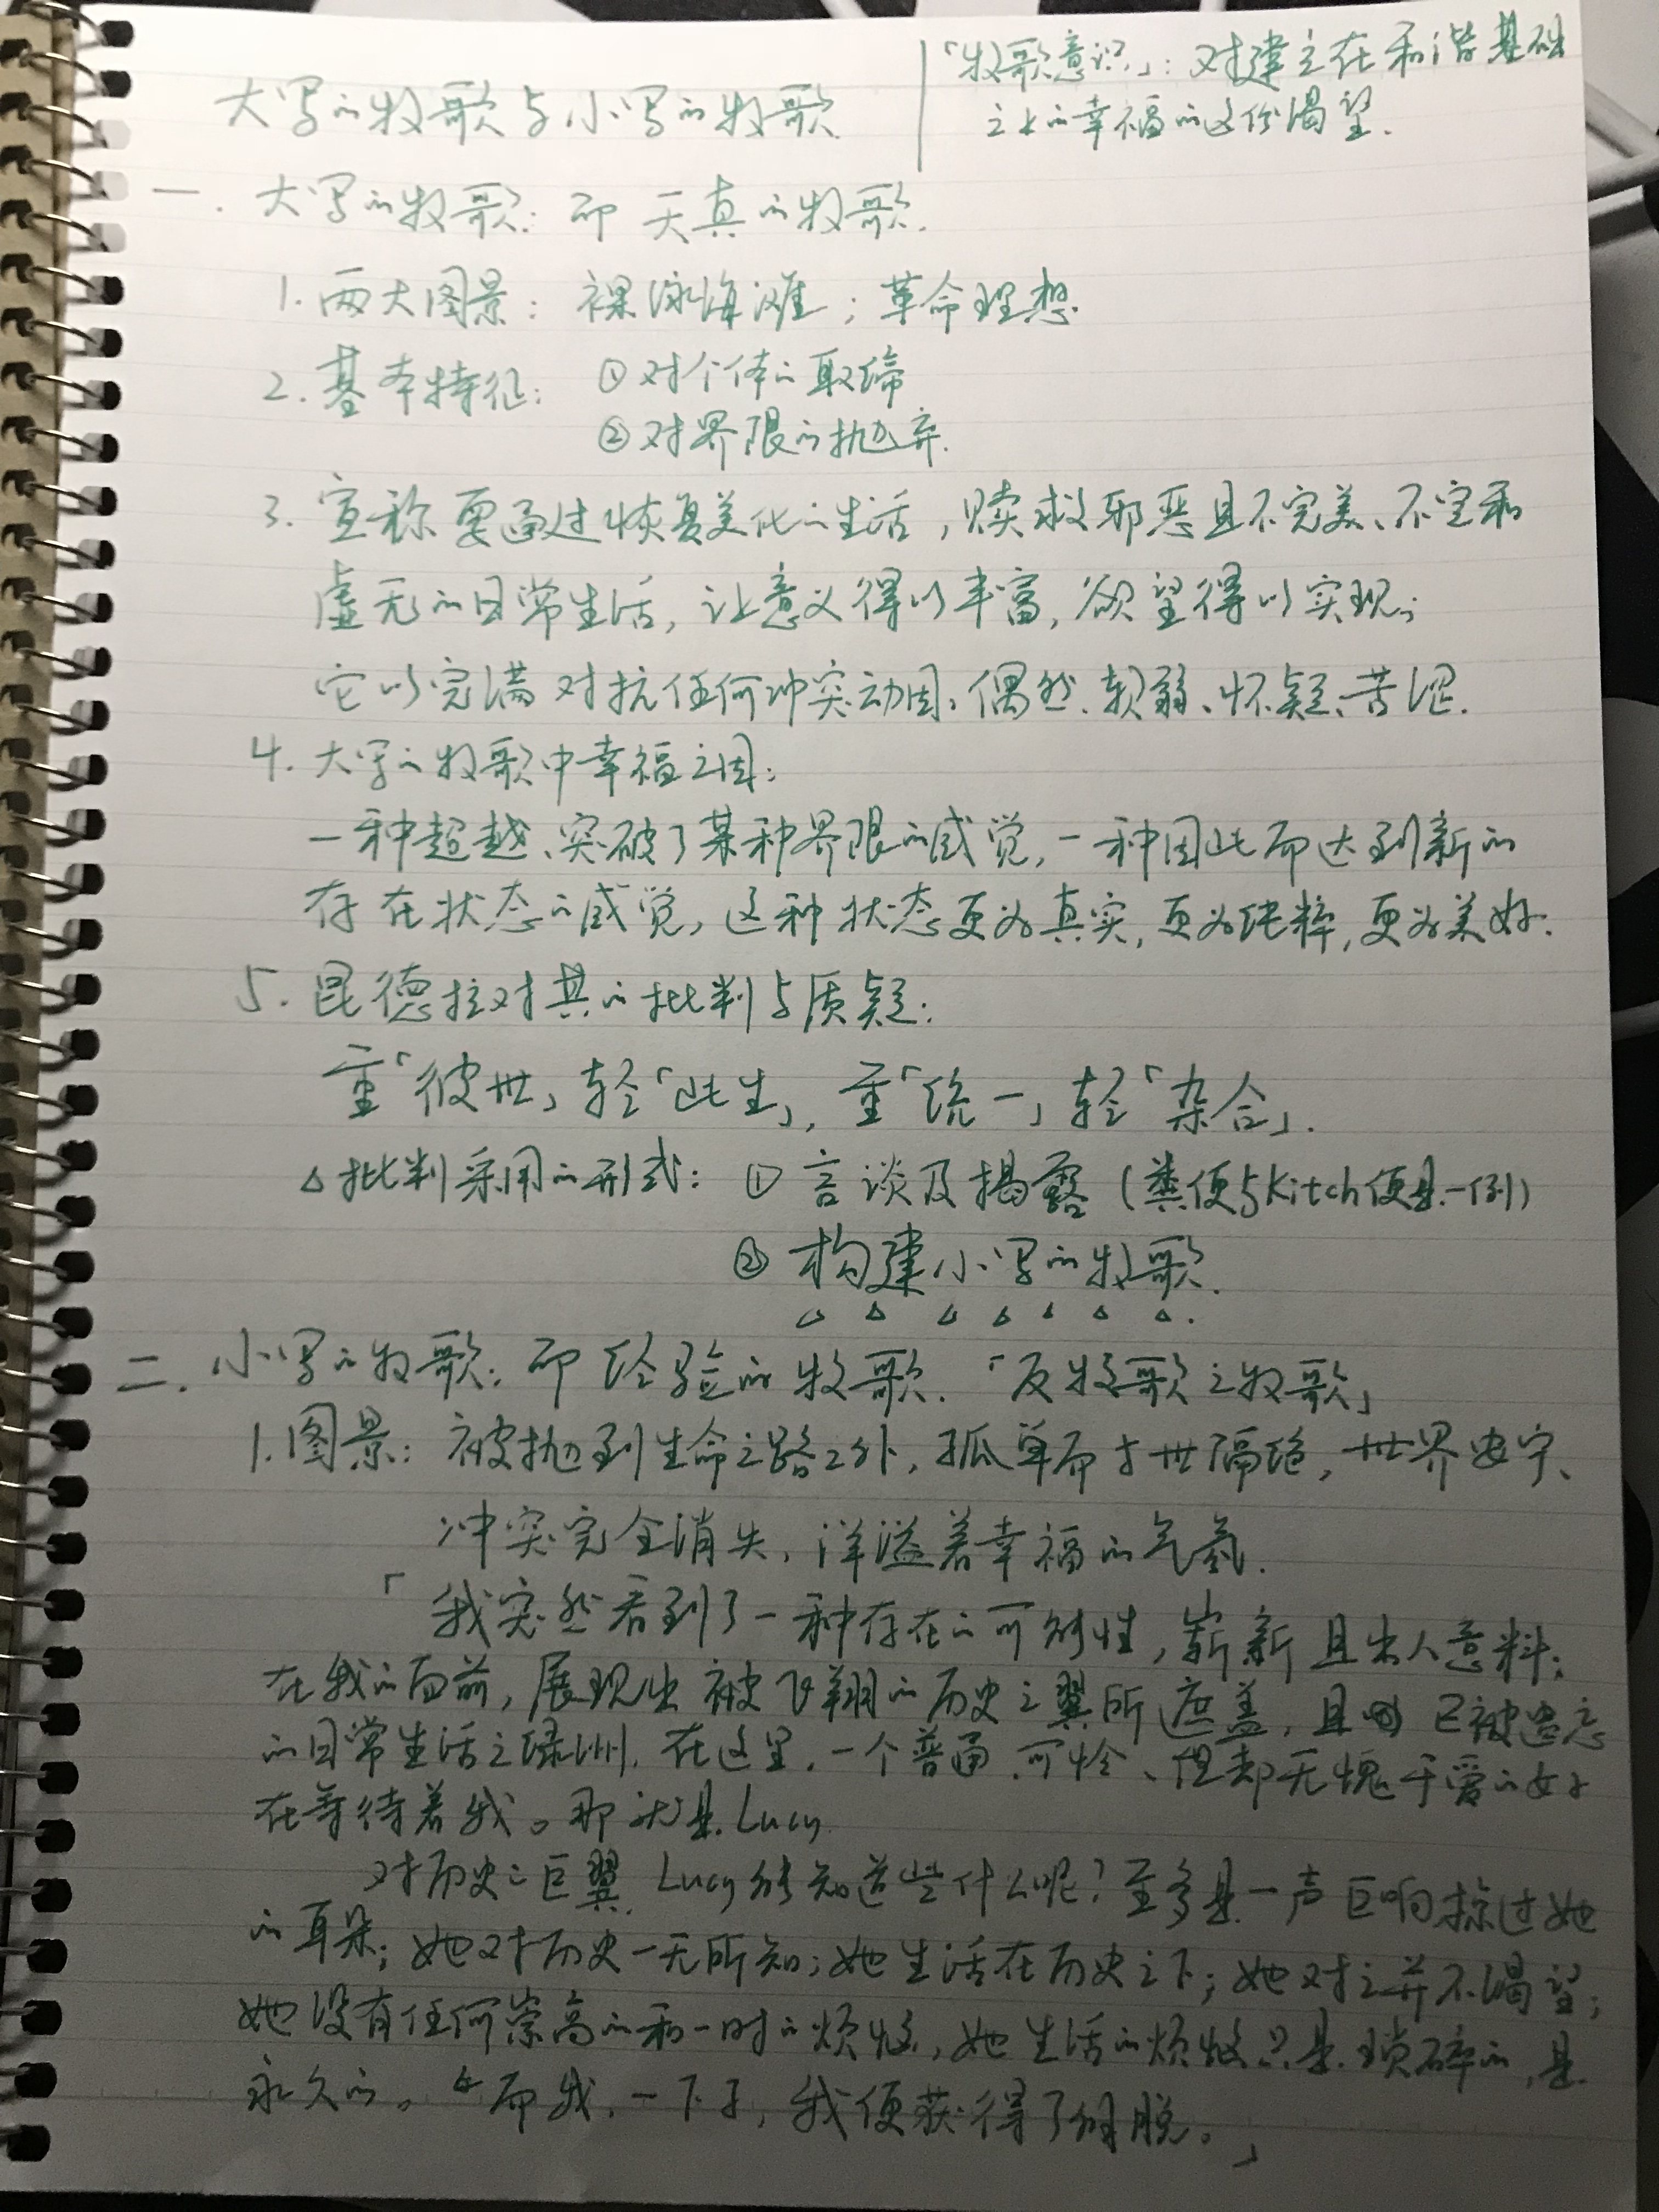 大写的牧歌与小写的牧歌
「牧歌意识」：对建立在和谐基础
之上的幸福的这份渴望.
一. 大写的牧歌：即 天真的牧歌.
1. 两大图景： 裸泳海滩；革命理想.
2. 基本特征： ① 对个体的取缔
② 对界限的抛弃.
3. 宣称要通过恢复美化的生活，赎救邪恶且不完美、不定和
虚无的日常生活，让意义得以丰富，欲望得以实现；
它以完满对抗任何冲突动因、偶然、软弱、怀疑、苦涩.
4. 大写的牧歌中幸福之因：
一种超越、突破了某种界限的感觉，一种因此而达到新的
存在状态的感觉，这种状态更为真实，更为纯粹，更为美好.
5. 昆德拉对其的批判与质疑：
重「彼世」轻「此生」，重「统一」轻「杂合」.
△批判采用的形式： ① 言谈及揭露（粪便与Kitch便是一例）
② 构建小写的牧歌.
二. 小写的牧歌：即 经验的牧歌.「反牧歌之牧歌」
1. 图景： 被抛到生命之路之外，孤单而与世隔绝，世界安宁、
冲突完全消失，洋溢着幸福的气氛.
「我突然看到了一种存在的可能性，崭新且出人意料；
在我的面前，展现出被飞翔的历史之翼所遮盖，且 已被遗忘
的日常生活之绿洲. 在这里，一个普通、可怜、但却无愧于爱的女子
在等待着我。那就是 Lucy.
对历史之巨翼，Lucy能知道些什么呢？至多是一声巨响掠过她
的耳朵；她对历史一无所知；她生活在历史之下；她对之并不渴望；
她没有任何崇高的和一时的烦恼，她生活的烦恼只是琐碎的，是
永久的。而我，一下子，我便获得了解脱。」